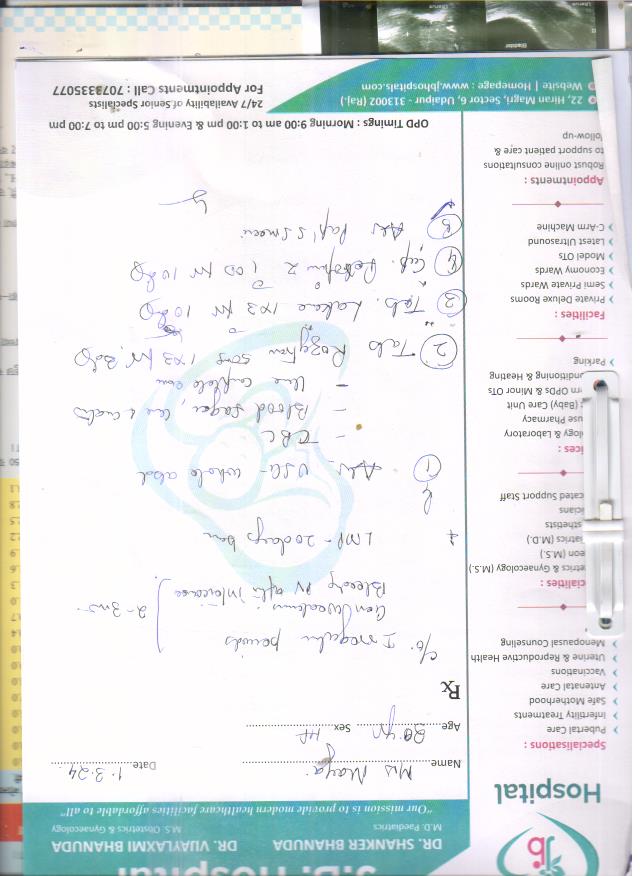 J.B. Hospital
DR. SHANKER BHANUDA
M.D. Paediatrics
DR. VIJAYLAXMI BHANUDA
M.S. Obstetrics & Gynaecology
"Our mission is to provide modern healthcare facilities affordable to all"
jb
Hospital
Specialisations :
Pubertal Care
Infertility Treatments
Safe Motherhood
Antenatal Care
Vaccinations
Uterine & Reproductive Health
Menopausal Counseling
cialities :
etrics & Gynaecology (M.S.)
eon (M.S.)
iatrics (M.D.)
sthetists
icians
cated Support Staff
ices :
logy & Laboratory
use Pharmacy
(Baby) Care Unit
rn OPDs & Minor OTs
onditioning & Heating
Parking
Facilities :
Private Deluxe Rooms
Semi Private Wards
Economy Wards
Model OTs
Latest Ultrasound
C-Arm Machine
Appointments :
Robust online consultations
to support patient care &
follow-up
Name Mrs Maya Date 1.3.24
Age 28 yr Sex
Rx
c/o Irregular periods
Gen Weakness 2-3 m
Bleeding PV after intercourse
LMP - 20 days
① Adv USG - whole abd
- CBC
- Blood sugar,
- Urine
② Tab 50mg 1x3
③ Tab. 1x3 10
④ Cap. 1 OD 10
⑤ Adv Pap's smear
OPD Timings : Morning 9:00 am to 1:00 pm & Evening 5:00 pm to 7:00 pm
22, Hiran Magri, Sector 6, Udaipur - 313002 (Raj.)
Website | Homepage : www.jbhospitals.com
24/7 Availability of Senior Specialists
For Appointments Call : 7073335077
Uterus
Uterus
Bladder